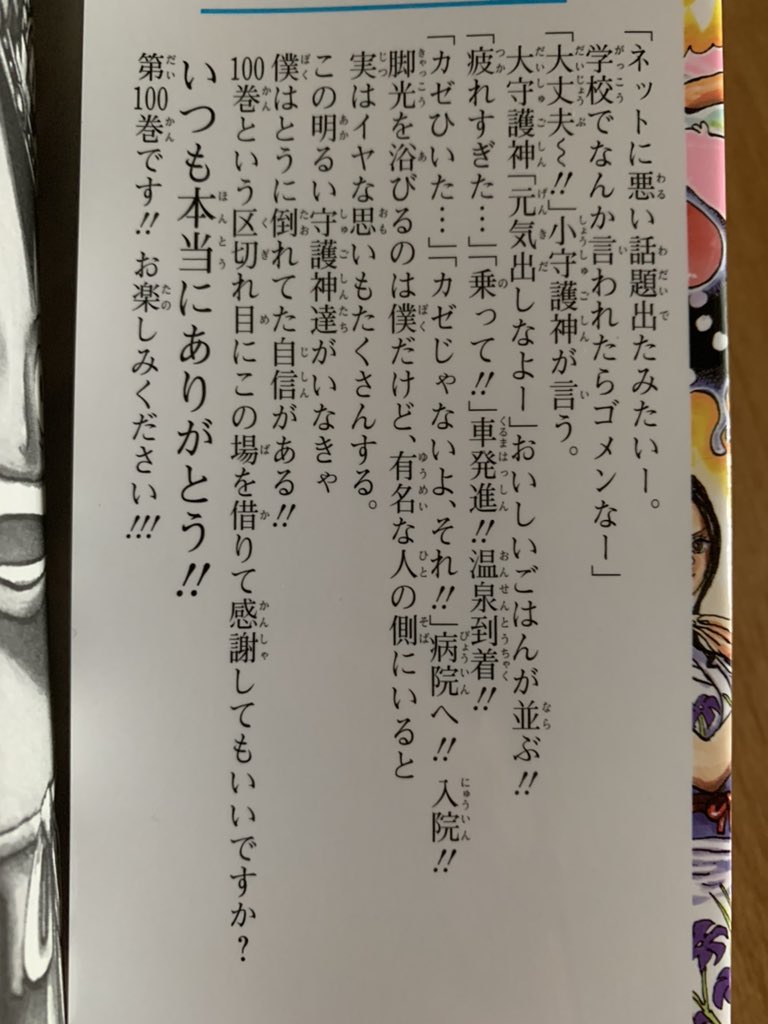 「ネットに悪い話題出たみたいー。
学校でなんか言われたらゴメンなー」
「大丈夫〜!!」小守護神が言う。
大守護神「元気出しなよー」おいしいごはんが並ぶ!!
「疲れすぎた…」「乗って!!」車発進!!温泉到着!!
「カゼひいた…」「カゼじゃないよ、それ!!」病院へ!! 入院!!
脚光を浴びるのは僕だけど、有名な人の側にいると
実はイヤな思いもたくさんする。
この明るい守護神達がいなきゃ
僕はとうに倒れてた自信がある!!
100巻という区切れ目にこの場を借りて感謝してもいいですか?
いつも本当にありがとう!!
第100巻です!! お楽しみください!!!